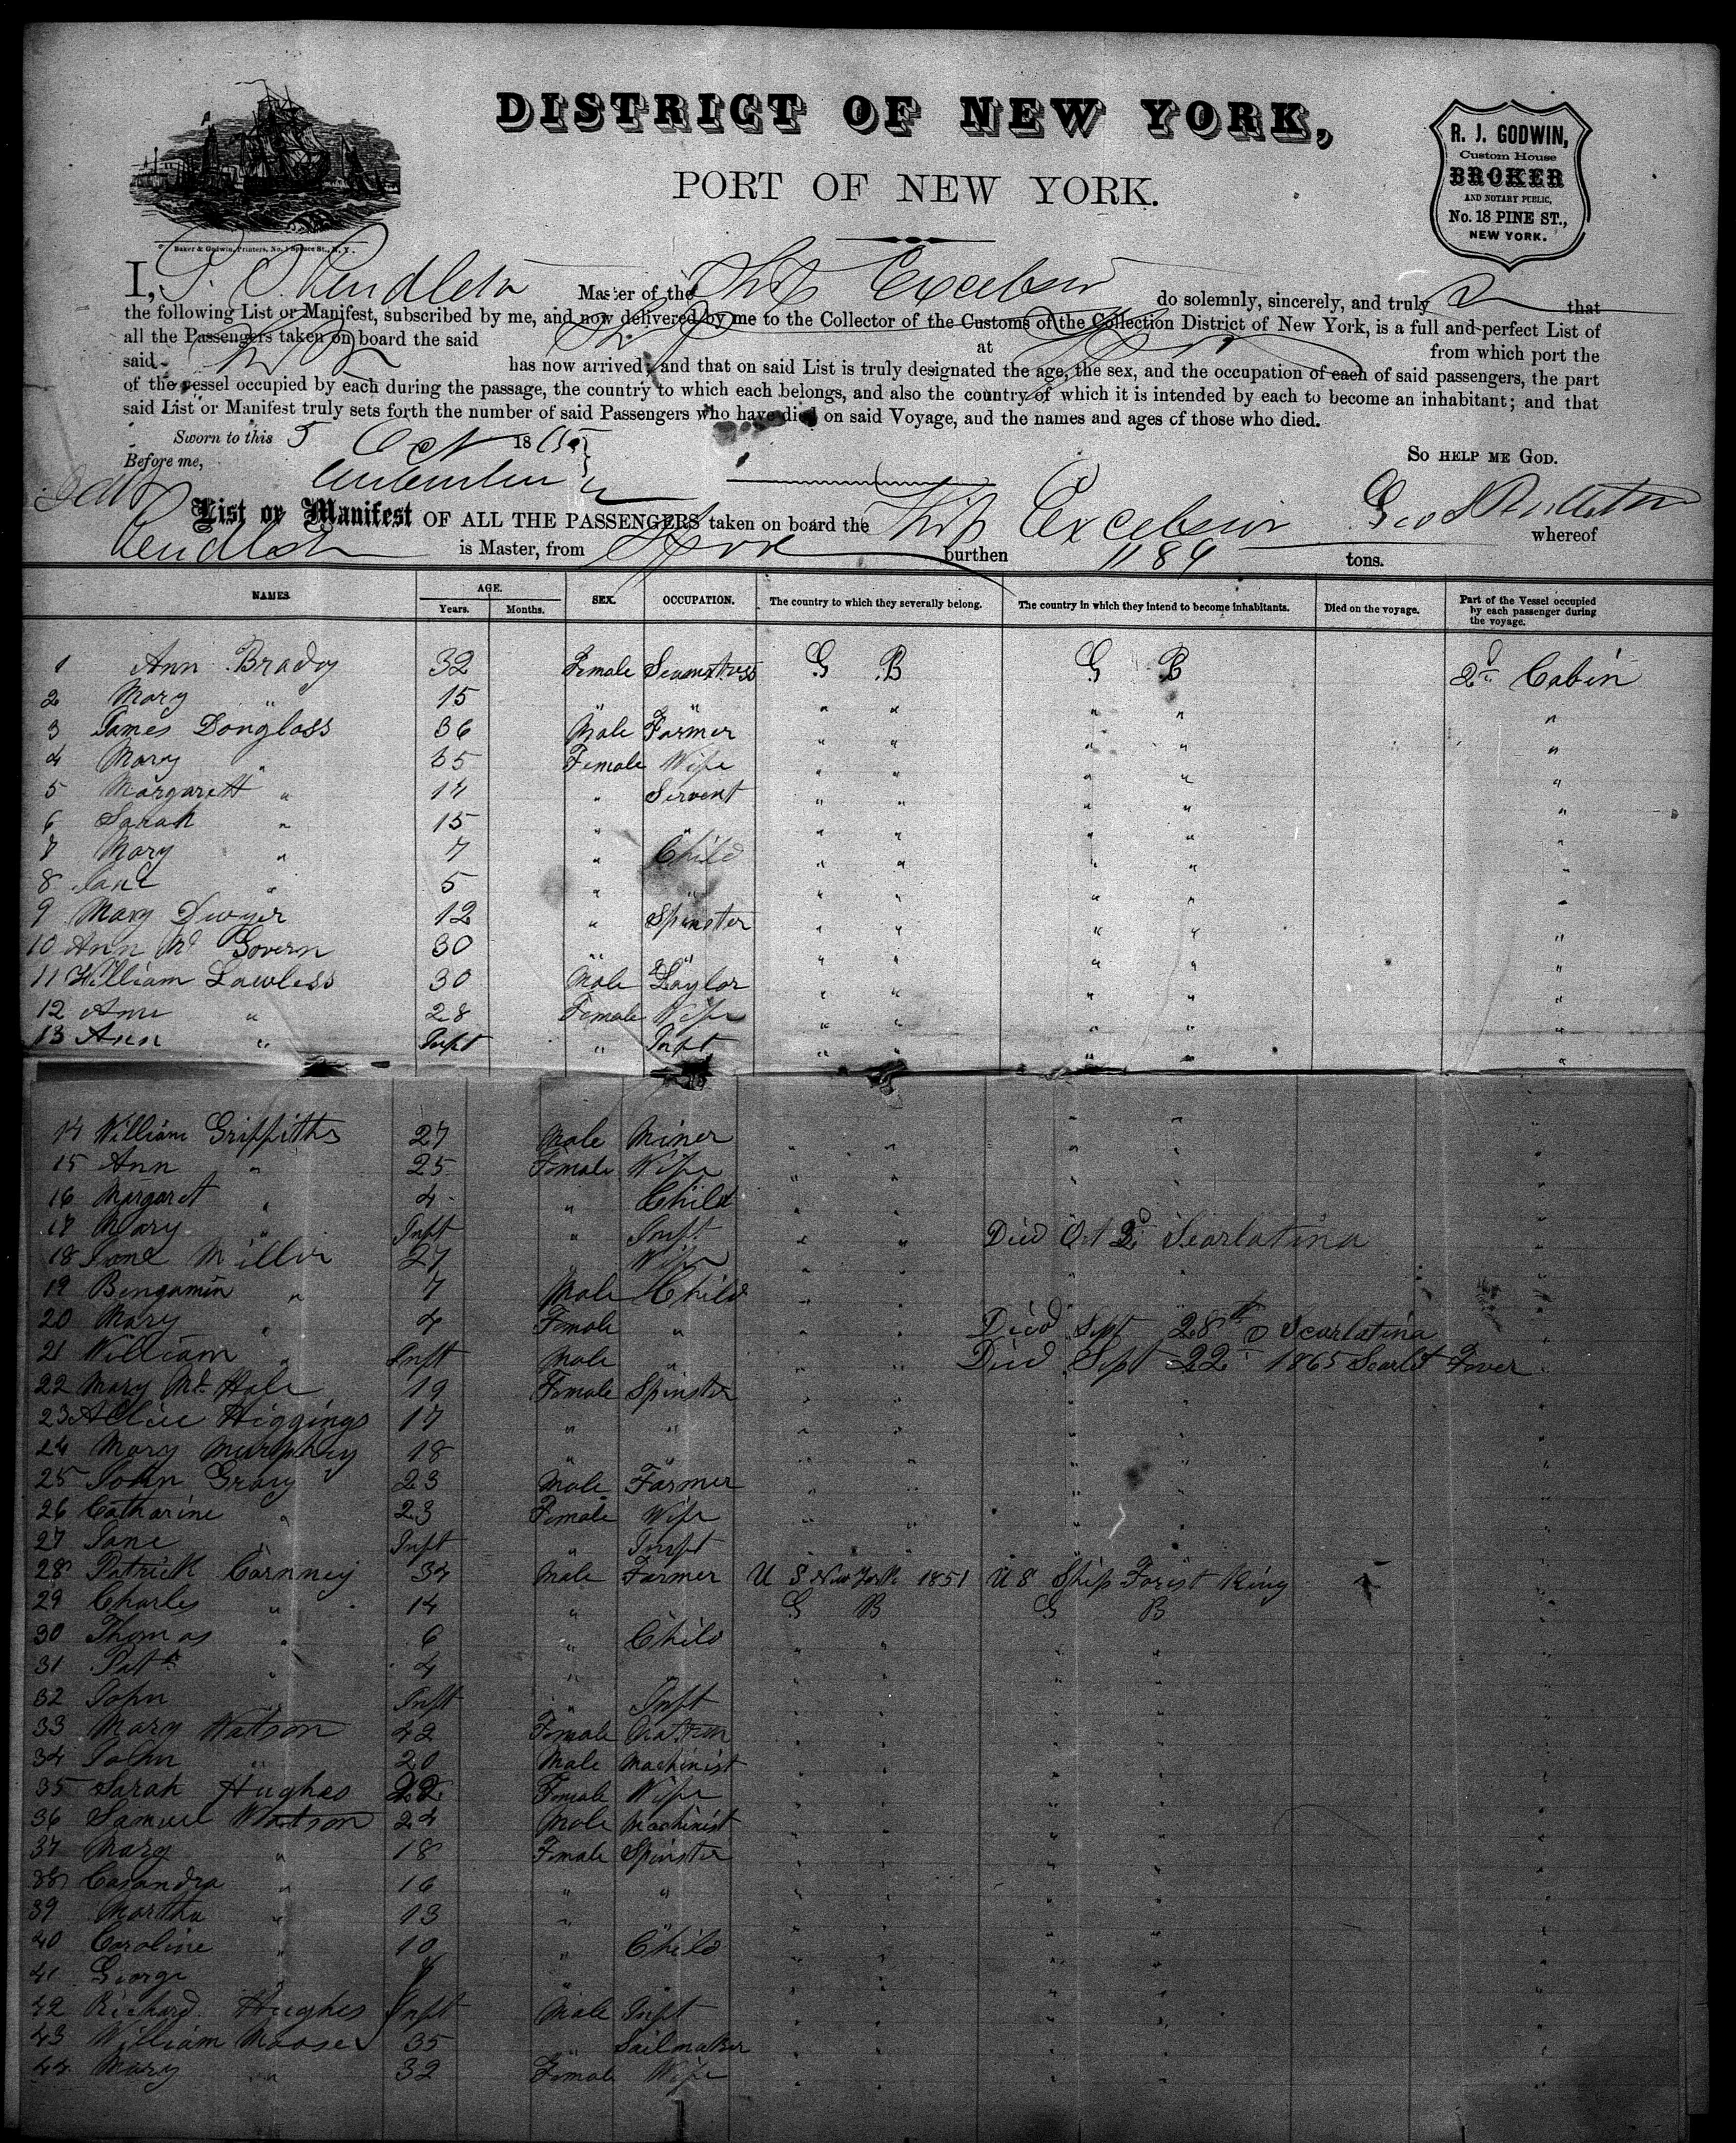 DISTRICT OF NEW YORK,
PORT OF NEW YORK.
R. J. GODWIN,
Custom House
BROKER
AND NOTARY PUBLIC,
No. 18 PINE ST.,
NEW YORK.
Baker & Godwin, Printers, No. 1 Spruce St., N. Y.
I, Pendleton Master of the Ship Excelsior do solemnly, sincerely, and truly that
the following List or Manifest, subscribed by me, and now delivered by me to the Collector of the Customs of the Collection District of New York, is a full and perfect List of
all the Passengers taken on board the said Ship at from which port the
said Ship has now arrived; and that on said List is truly designated the age, the sex, and the occupation of each of said passengers, the part
of the vessel occupied by each during the passage, the country to which each belongs, and also the country of which it is intended by each to become an inhabitant; and that
said List or Manifest truly sets forth the number of said Passengers who have died on said Voyage, and the names and ages of those who died.
Sworn to this 5 Oct 1865
Before me,
So HELP ME GOD.
List or Manifest OF ALL THE PASSENGERS taken on board the Ship Excelsior Geo S Pendleton whereof
Pendleton is Master, from burthen 1184 tons.
NAMES. AGE. Years. Months. SEX. OCCUPATION. The country to which they severally belong. The country in which they intend to become inhabitants. Died on the voyage. Part of the Vessel occupied by each passenger during the voyage.
1 Ann Brady 32 Female Seamstress G B G B 2d Cabin
2 Mary " 15 " " " " " " "
3 James Donglass 36 Male Farmer " " " " "
4 Mary " 35 Female Wife " " " " "
5 Margarett " 14 " Servent " " " " "
6 Sarah " 15 " " " " " " "
7 Mary " 7 " Child " " " " "
8 Jane " 5 " " " " " " "
9 Mary Dwyer 12 " Spinster " " " " "
10 Ann Mc Govern 30 " " " " " " "
11 William Lawless 30 Male Taylor " " " " "
12 Ann " 28 Female Wife " " " " "
13 Ann " Inft " Inft " " " " "
14 William Griffiths 27 Male Miner " " " " "
15 Ann " 25 Female Wife " " " " "
16 Margaret " 4 " Child " " " " "
17 Mary " Inft " Inft " " Died Oct 2d Scarlatina "
18 Jane Miller 27 Wife " " " " "
19 Bengamin " 7 Male Child " " " " "
20 Mary " 4 Female " " " Died Sept 28th Scarlatina "
21 William " Inft Male " " " Died Sept 22 1865 Scarlet Fever "
22 Mary Mc Hale 19 Female Spinster " " " " "
23 Allice Higgings 17 " " " " " " "
24 Mary Murphey 18 " " " " " " "
25 John Gray 23 Male Farmer " " " " "
26 Catharine " 23 Female Wife " " " " "
27 Jane " Inft " Inft " " " " "
28 Patrick Carnney 34 Male Farmer U S New York 1851 U S Ship Forest King "
29 Charles " 14 " G B G B "
30 Thomas " 6 " Child " " " " "
31 Patk " 4 " " " " " "
32 John Inft " Inft " " " " "
33 Mary Watson 42 Female Matron " " " " "
34 John " 20 Male Machinist " " " " "
35 Sarah Hughes 22 Female Wife " " " " "
36 Samuel Watson 24 Male Machinist " " " " "
37 Mary " 18 Female Spinster " " " " "
38 Casandra " 16 " " " " " " "
39 Martha " 13 " " " " " "
40 Caroline " 10 " Child " " " " "
41 George " " " " " " "
42 Richard Hughes Inft Male Inft " " " " "
43 William Mooses 35 " Sailmaker " " " " "
44 Mary " 32 Female Wife " " " " "